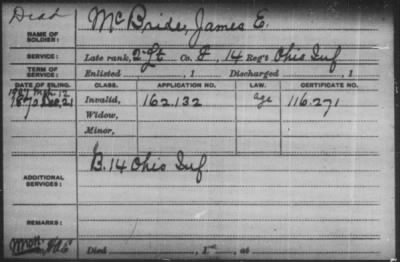 Dead
NAME OF SOLDIER: McBride, James E.
SERVICE: Late rank, 2 Lt Co. F, 14 Reg't Ohio Inf
TERM OF SERVICE: Enlisted , 1 Discharged , 1
DATE OF FILING. CLASS. APPLICATION NO. LAW. CERTIFICATE NO.
1907 Mch. 12
1870 Dec. 21 Invalid, 162.132 age 116.271
Widow,
Minor,
ADDITIONAL SERVICES: B. 14 Ohio Inf
REMARKS:
Died , 1 , at